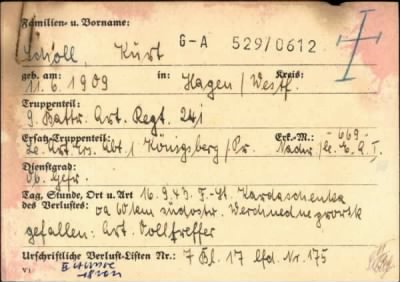 Familien- u. Vorname:
Scholl, Kurt G-A 529/0612
geb. am: in: Kreis:
11.6.1909 Hagen / Westf.
Truppenteil:
9. Battr. Art. Regt. 241
Ersatz-Truppenteil: Erk.-M.: -669-
Le. Art. Ers. Abt. 1 Königsberg / Pr. Nachr. / le. E. A. 1.
Dienstgrad:
Ob. Gefr.
Tag, Stunde, Ort u. Art 16.9.43. F.-St. Kardaschenka
des Verlustes: ca 60 km südostr.
gefallen: Art. Volltreffer
Urschriftliche Verlust-Listen Nr.: 7 Bl. 17 lfd. Nr. 175
VI